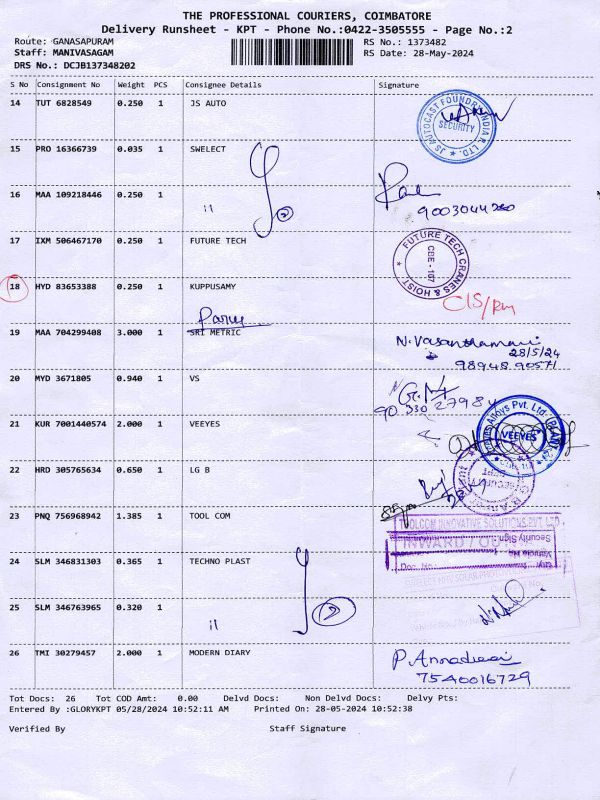 THE PROFESSIONAL COURIERS, COIMBATORE
Delivery Runsheet - KPT - Phone No.:0422-3505555 - Page No.:2
Route: GANASAPURAM RS No.: 1373482
Staff: MANIVASAGAM RS Date: 28-May-2024
DRS No.: DCJB137348202
S No Consignment No Weight PCS Consignee Details Signature
14 TUT 6828549 0.250 1 JS AUTO
JS AUTOCAST FOUNDRY INDIA P. LTD. SECURITY
15 PRO 16366739 0.035 1 SWELECT
16 MAA 109218446 0.250 1 "
2
17 IXM 506467170 0.250 1 FUTURE TECH
FUTURE TECH CRANES & HOIST CBE - 107
18 HYD 83653388 0.250 1 KUPPUSAMY
19 MAA 704299408 3.000 1 SRI METRIC
N. Vasanthamani
28/5/24
98948 90571
20 MYD 3671805 0.940 1 VS
21 KUR 7001440574 2.000 1 VEEYES
Alloys Pvt. Ltd. VEEYES
22 HRD 305765634 0.650 1 LG B
23 PNQ 756968942 1.385 1 TOOL COM
TOOLCOM INNOVATIVE SOLUTIONS PVT LTD
24 SLM 346831303 0.365 1 TECHNO PLAST
25 SLM 346763965 0.320 1 "
2
26 TMI 30279457 2.000 1 MODERN DIARY
7540016729
Tot Docs: 26 Tot COD Amt: 0.00 Delvd Docs: Non Delvd Docs: Delvy Pts:
Entered By :GLORYKPT 05/28/2024 10:52:11 AM Printed On: 28-05-2024 10:52:38
Verified By Staff Signature